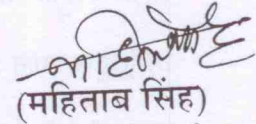 (महिताब सिंह)